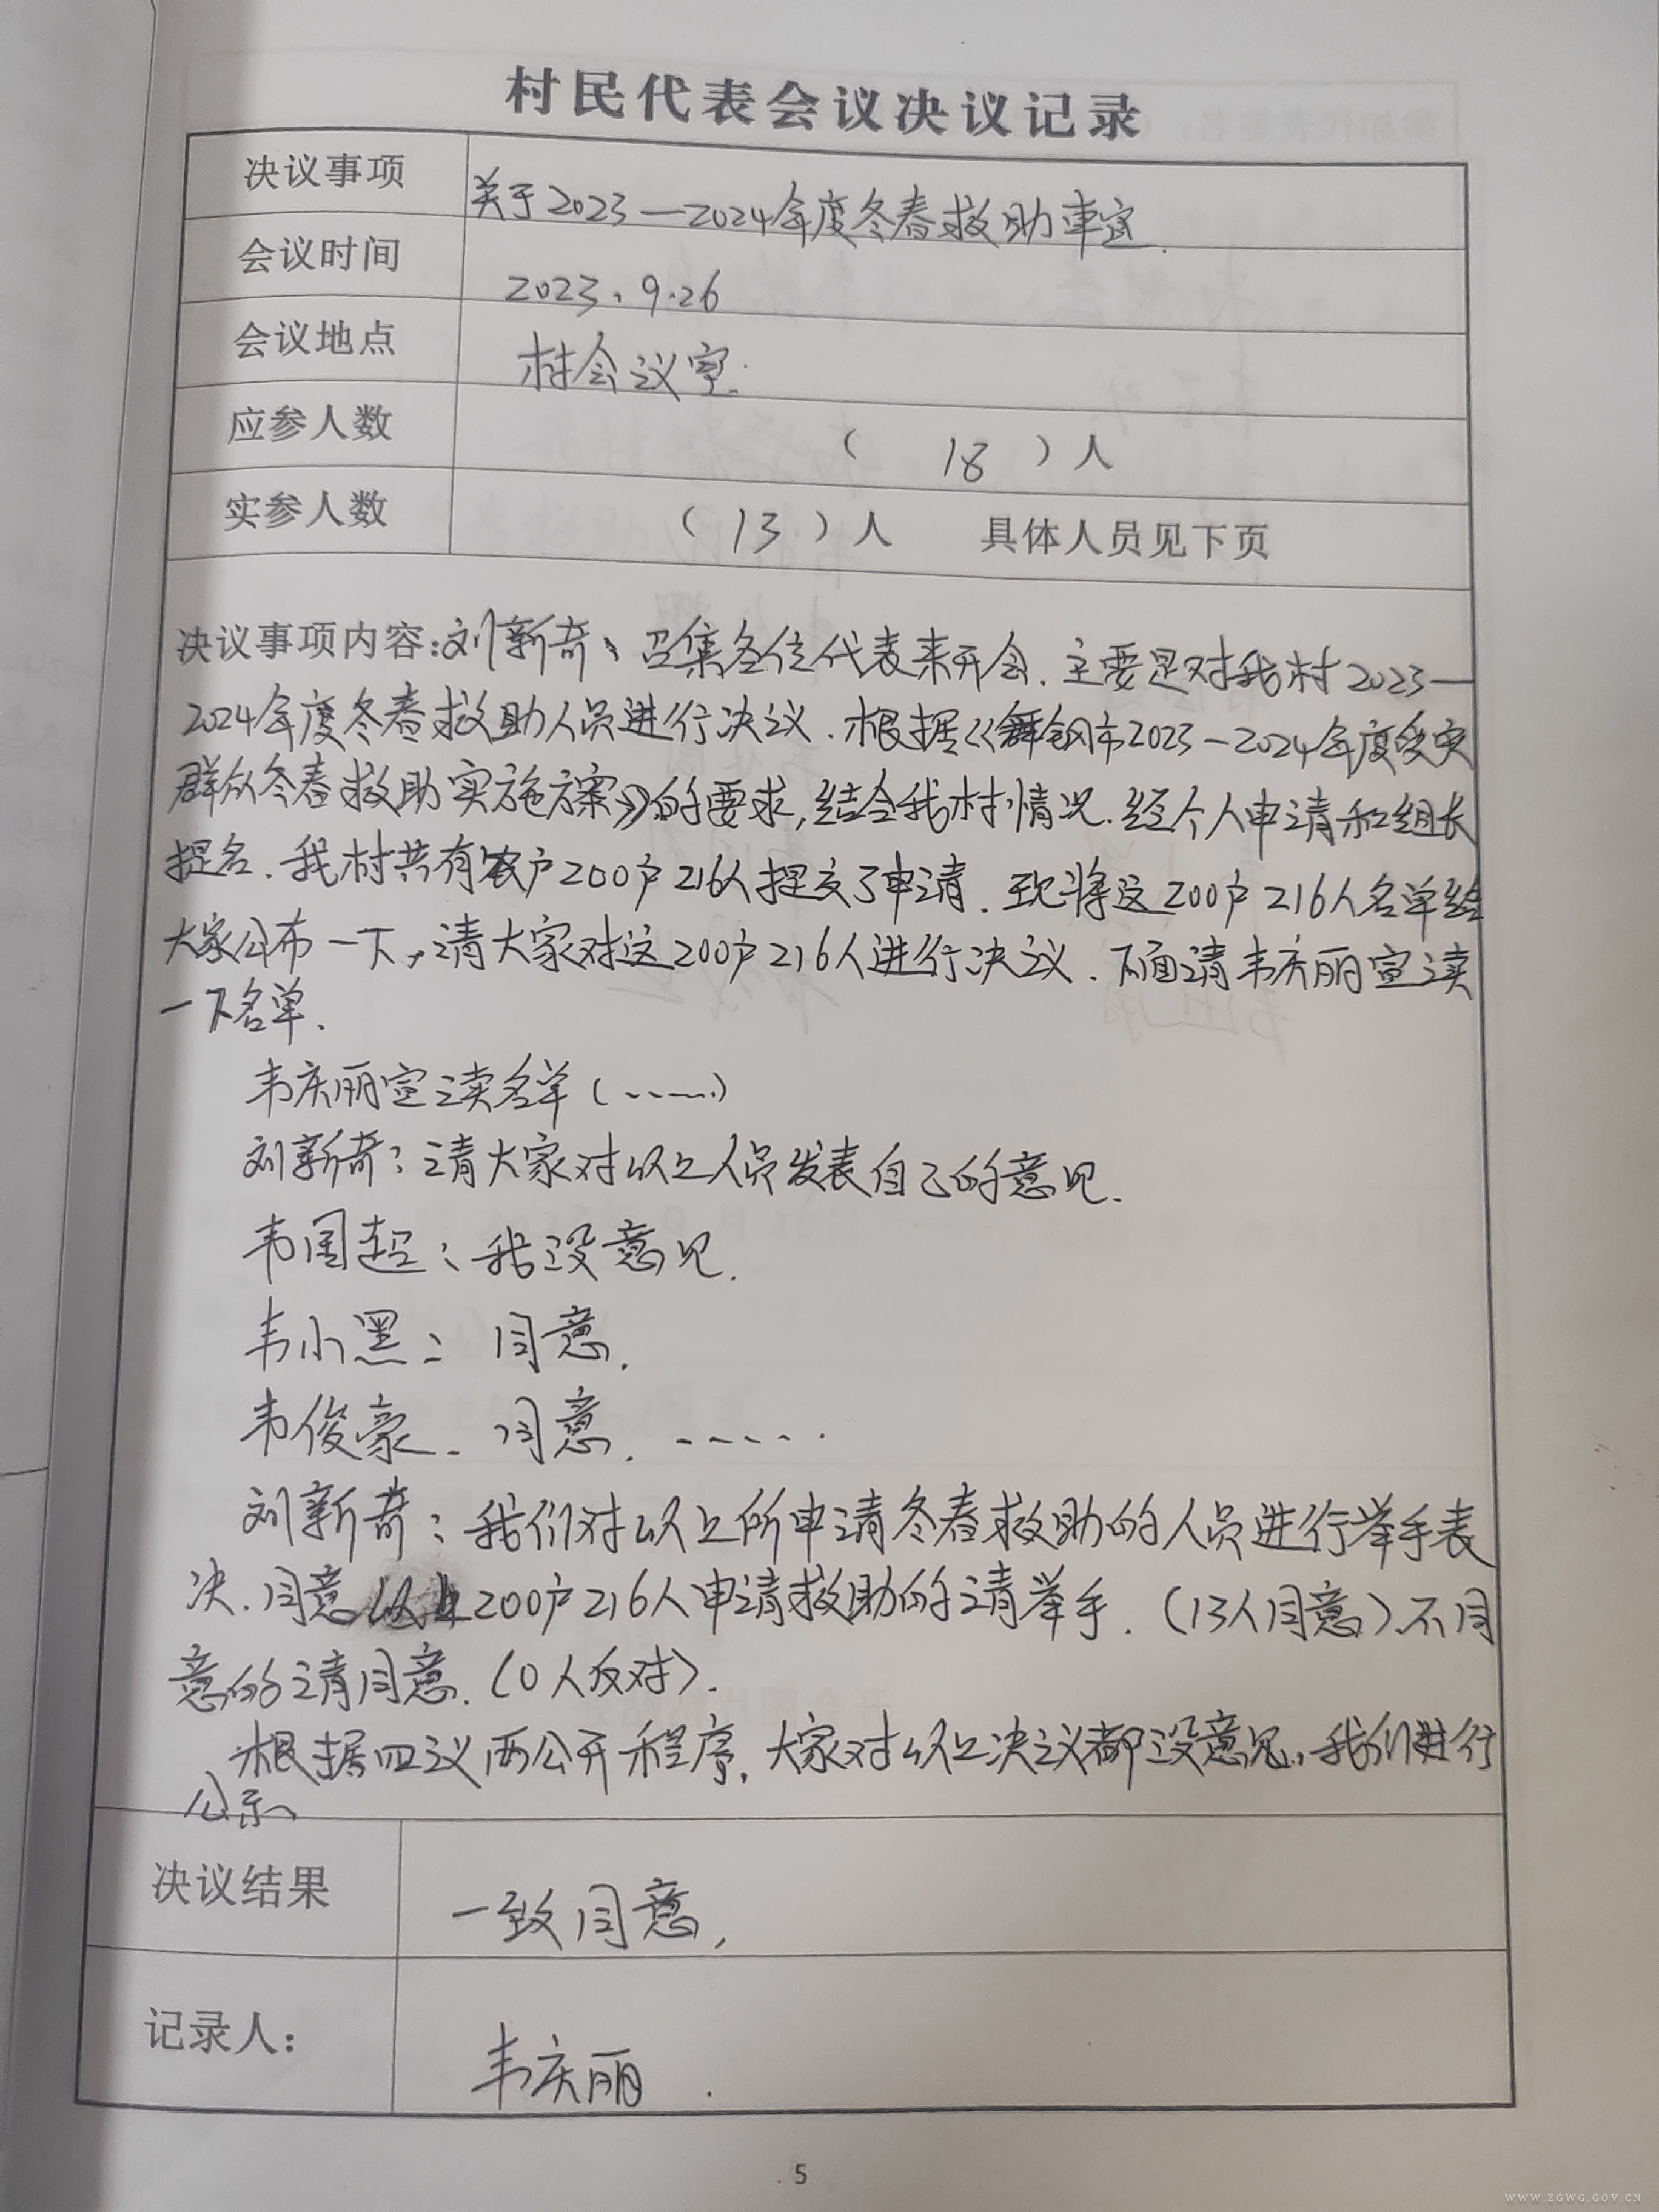 村民代表会议决议记录
决议事项 关于2023—2024年度冬春救助事宜.
会议时间 2023.9.26
会议地点 村会议室.
应参人数 ( 18 ) 人
实参人数 ( 13 ) 人 具体人员见下页
决议事项内容:刘新奇:召集各位代表来开会.主要是对我村2023—
2024年度冬春救助人员进行决议.根据《舞钢市2023—2024年度受灾
群众冬春救助实施方案》的要求,结合我村情况.经个人申请和组长
提名.我村共有农户200户216人提交了申请.现将这200户216人名单给
大家公布一下,请大家对这200户216人进行决议.下面请韦庆丽宣读
一下名单.
韦庆丽宣读名单(……)
刘新奇:请大家对以上人员发表自己的意见.
韦国超:我没意见.
韦小黑:同意.
韦俊豪.同意.……
刘新奇:我们对以上所申请冬春救助的人员进行举手表
决.同意以上200户216人申请救助的请举手.(13人同意).不同
意的请同意.(0人反对).
根据四议两公开程序,大家对以上决议都没意见,我们进行
公示、
决议结果 一致同意,
记录人: 韦庆丽.
5
WWW.ZGWG.GOV.CN